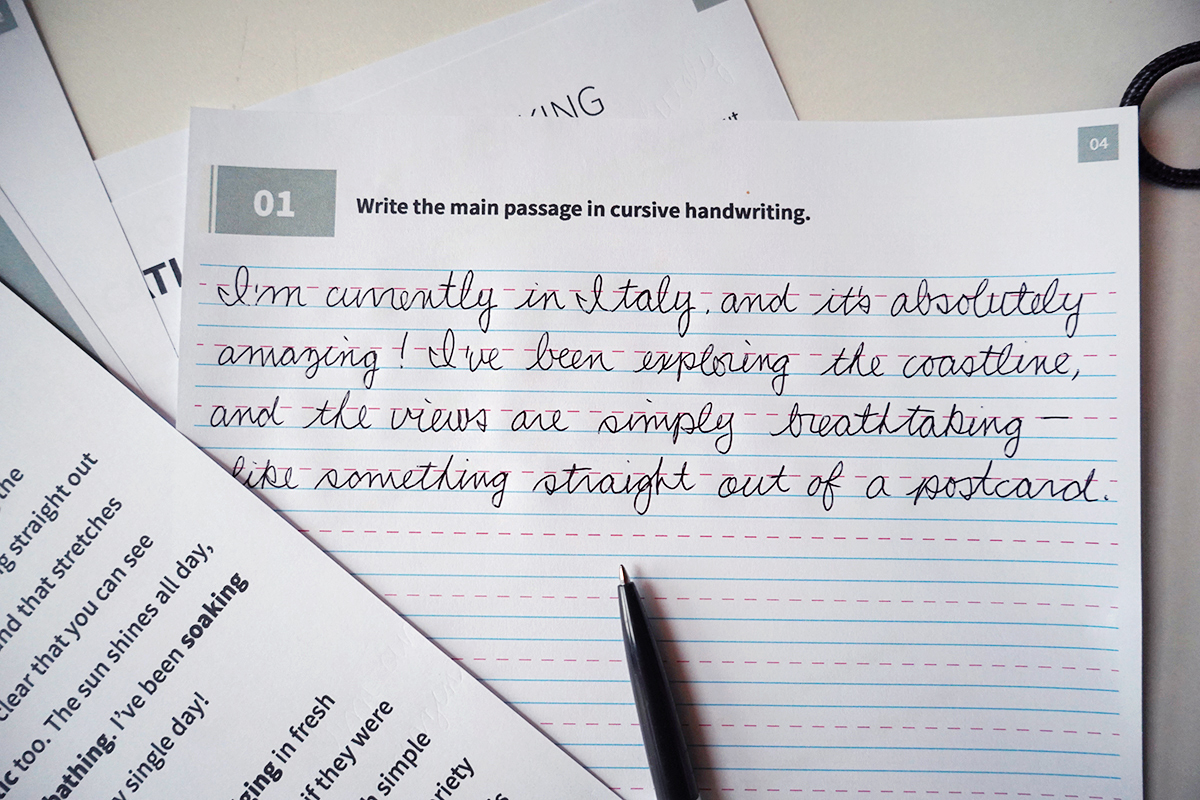 KING
04
01
Write the main passage in cursive handwriting.
I'm currently in Italy, and it's absolutely
amazing! I've been exploring the coastline,
and the views are simply breathtaking —
like something straight out of a postcard.
the
straight out
and that stretches
clear that you can see
too. The sun shines all day,
I've been soaking
single day!
in fresh
if they were
simple